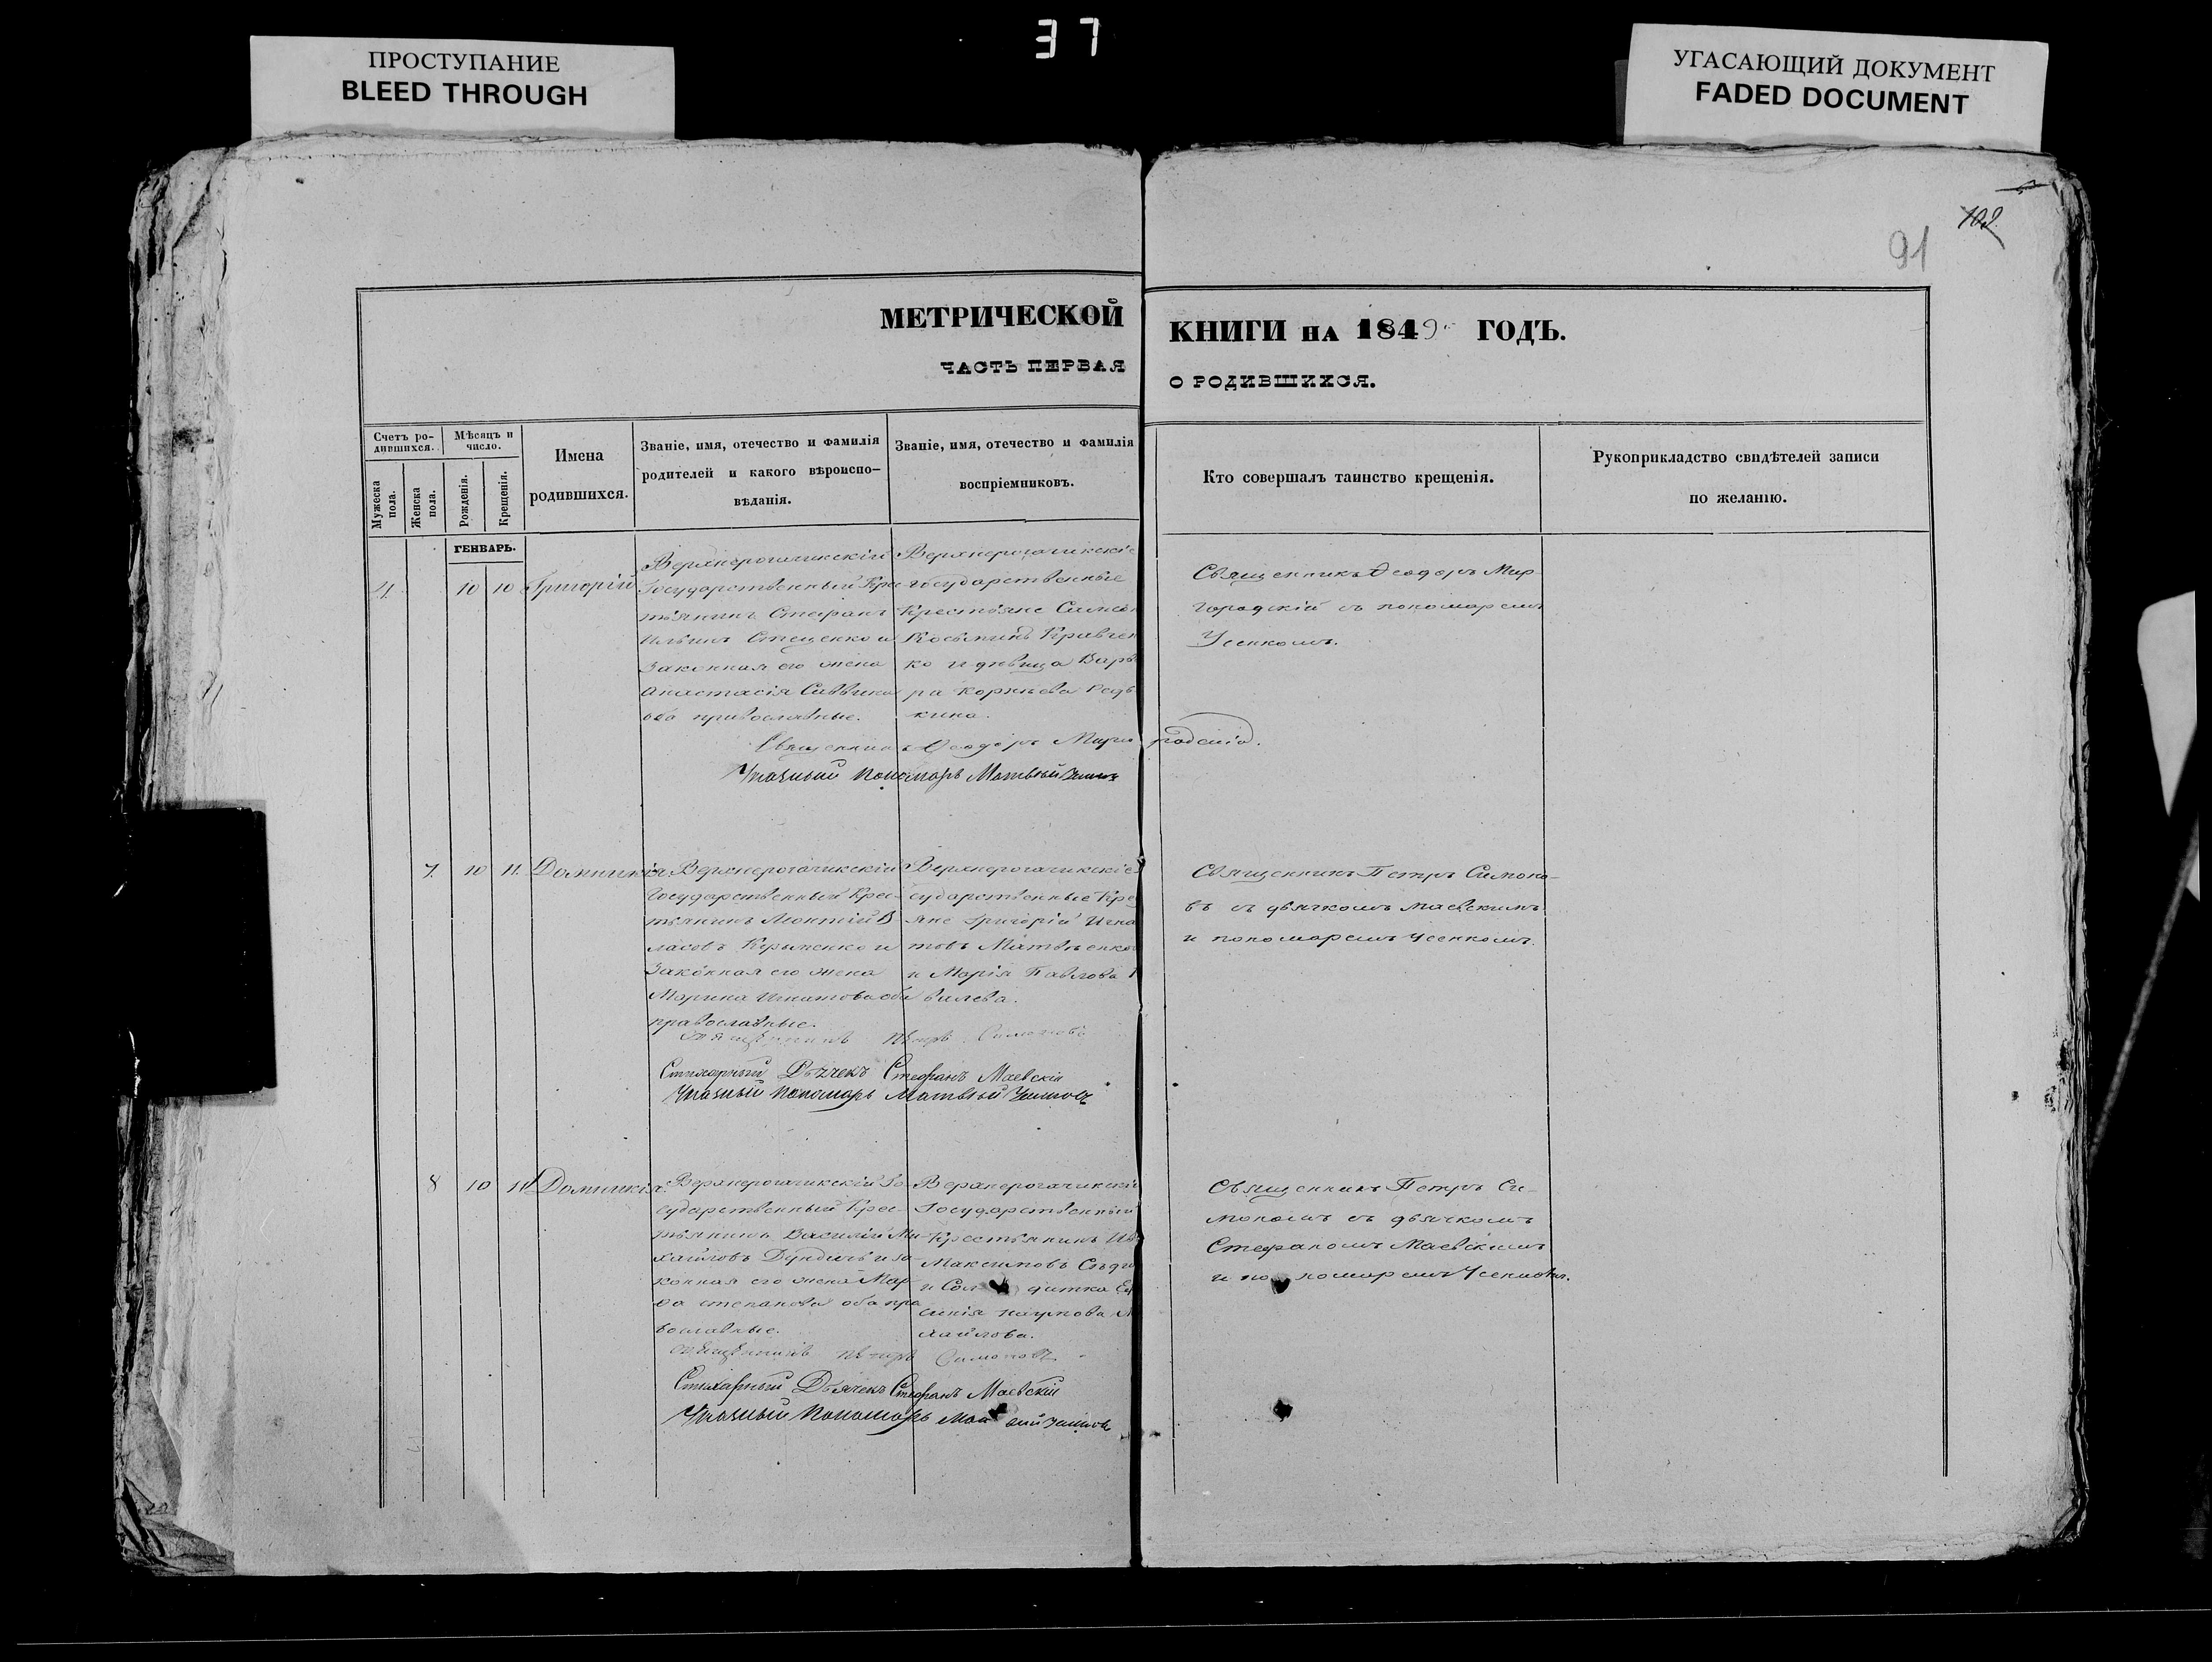 37
ПРОСТУПАНИЕ
BLEED THROUGH
УГАСАЮЩИЙ ДОКУМЕНТ
FADED DOCUMENT
102
91
МЕТРИЧЕСКОЙ КНИГИ НА 1849 ГОДЪ.
ЧАСТЬ ПЕРВАЯ О РОДИВШИХСЯ.
Счетъ ро-
дившихся.
Мужеска
пола.
Женска
пола.
Мѣсяцъ и
число.
Рожденія.
Крещенія.
Имена
родившихся.
Званіе, имя, отечество и фамилія
родителей и какого вѣроиспо-
вѣданія.
Званіе, имя, отечество и фамилія
воспріемниковъ.
Кто совершалъ таинство крещенія.
Рукоприкладство свидѣтелей записи
по желанію.
ГЕНВАРЬ.
4
10
10
Григорій
Верхнерогачикскій
Государственный Крес-
тьянинъ Стефанъ
Ильинъ Стеценко и
Законная его жена
Анастасія Саввина
оба православные.
Верхнерогачикскіе
государственные
Крестьяне
Косьминъ Кравчен
ко и дѣвица Варва
ра Корнѣева Редь
кина.
Священникъ Ѳеодоръ Мир-
городскій съ пономаремъ
Усенкомъ.
Священникъ Ѳеодоръ Миргородскій.
Указный Пономарь Матвѣй
7.
10
11.
Домникія.
Верхнерогачикскій
Государственный Крес-
тьянинъ Леонтій В
ласовъ Кирьменко и
Законная его жена
Марина Игнатова оба
православные.
Верхнерогачикскіе
сударственные Крес
яне Григорій Игна
товъ Матвѣенко
и Марія Павлова
вилева.
Священникъ Петръ Симоно-
въ съ дьячкомъ Маевскимъ
и пономаремъ Усенкомъ.
Священникъ Петръ Симоновъ
Стихарный Дьячекъ Стефанъ Маевскій
Указный Пономарь Матвѣй
8
10
11
Домникія.
Верхнерогачикскій Го-
сударственный Крес-
тьянинъ Василій Ми-
хайловъ Дундичъ и за-
конная его жена Мар
ѳа степанова оба пра
вославные.
Верхнерогачикскій
Государственный
Крестьянинъ
Максимовъ
и датка
наумова
хайлова.
Священникъ Петръ Си-
моновъ съ дьячкомъ
Стефаномъ Маевскимъ
и пономаремъ
Священникъ Петръ Симоновъ
Стихарный Дьячекъ Стефанъ Маевскій
Указный Пономарь